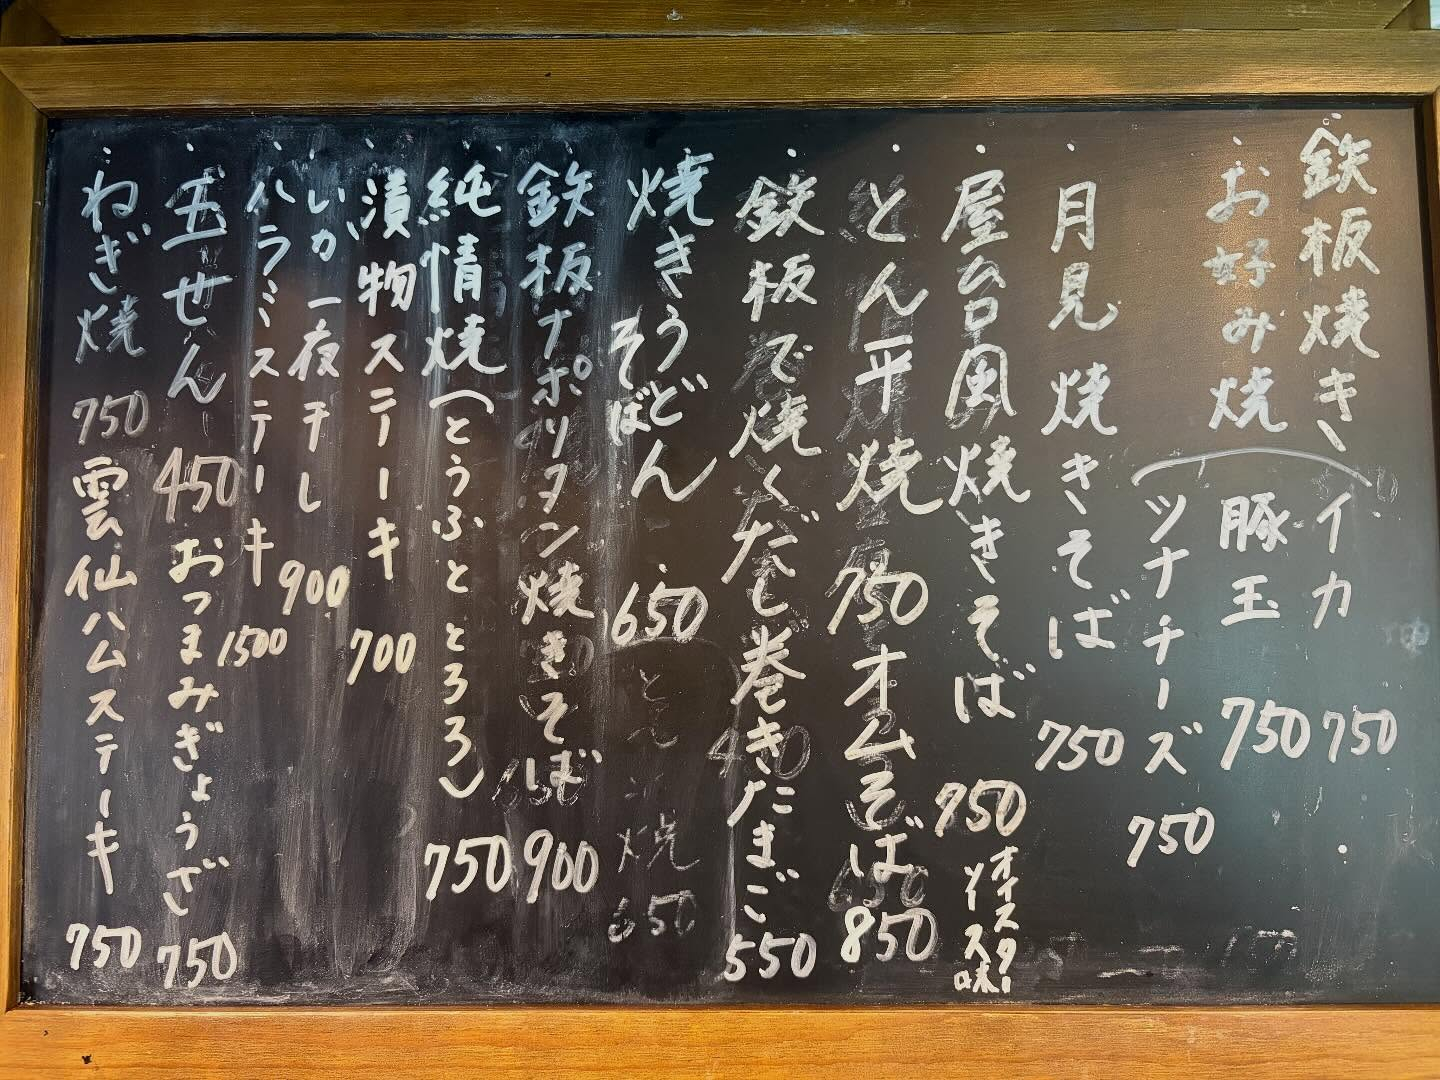 鉄板焼き、
・お好み焼
イカ 750
豚玉 750
ツナチーズ 750
・月見焼きそば 750
・屋台風焼きそば 750
オイスターソース味
・とん平焼 750
オムそば 850
・鉄板で焼くだし巻きたまご 550
・焼きうどん
そばぼん
・650
・鉄板ナポリタン焼きそば 900
・純情焼(とうふととろろ) 750
・漬物ステーキ 700
・いか一夜干し 900
・ハラミステーキ 1500
・玉せん 450
おつまみぎょうざ 750
・ねぎ焼 750
雲仙ハムステーキ 750